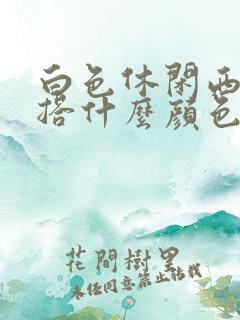 白色休閑西
搭什麼顏色
花間樹里
未經同意禁止轉載